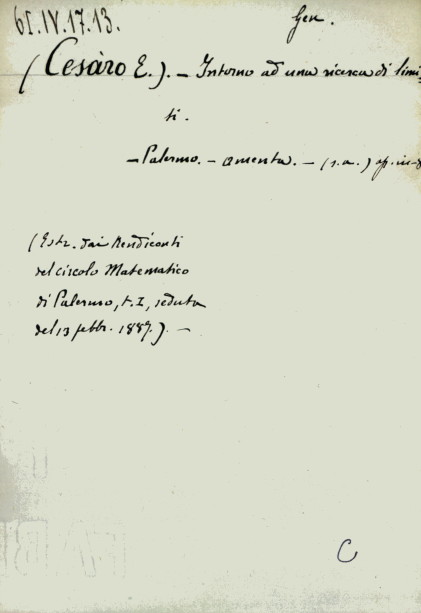 61.IV.17.13.
Gen.
(Cesàro E.). - Intorno ad una ricerca di limi-
ti.
- Palermo. - Amenta. - (s.a.) op. in-8
(Estr. dai Rendiconti
del circolo Matematico
di Palermo, t. I, seduta
del 13 febbr. 1887.). -
C